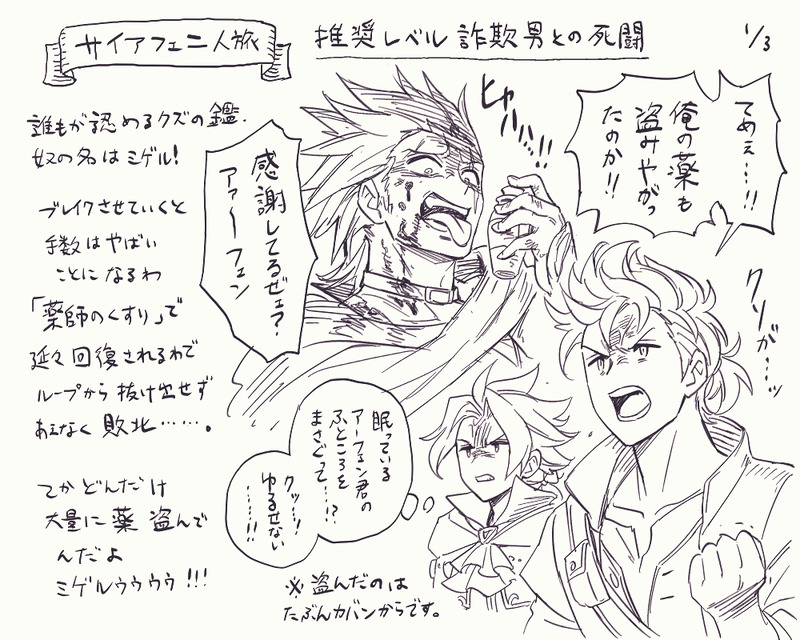 サイアフェニ人旅
推奨レベル 詐欺男との死闘
1/3
誰もが認めるクズの鑑.
奴の名はミゲル!
ブレイクさせていくと
手数はやばい
ことになるわ
「薬師のくすり」で
延々回復されるわで
ループから抜け出せず
あえなく敗北……。
てかどんだけ
大量に薬盗んで
んだよ
ミゲルゥゥゥゥ!!!
ヒャハハハ…!!
てめぇ…!!
俺の薬も
盗みやがっ
たのか!!
感謝してるぜェ?
アァ〜フェン
クソが…ッ
眠っている
アーフェン君の
ふところを
まさぐって…!?
クッ…!
ゆるせない
……!!
※盗んだのは
たぶんカバンからです。